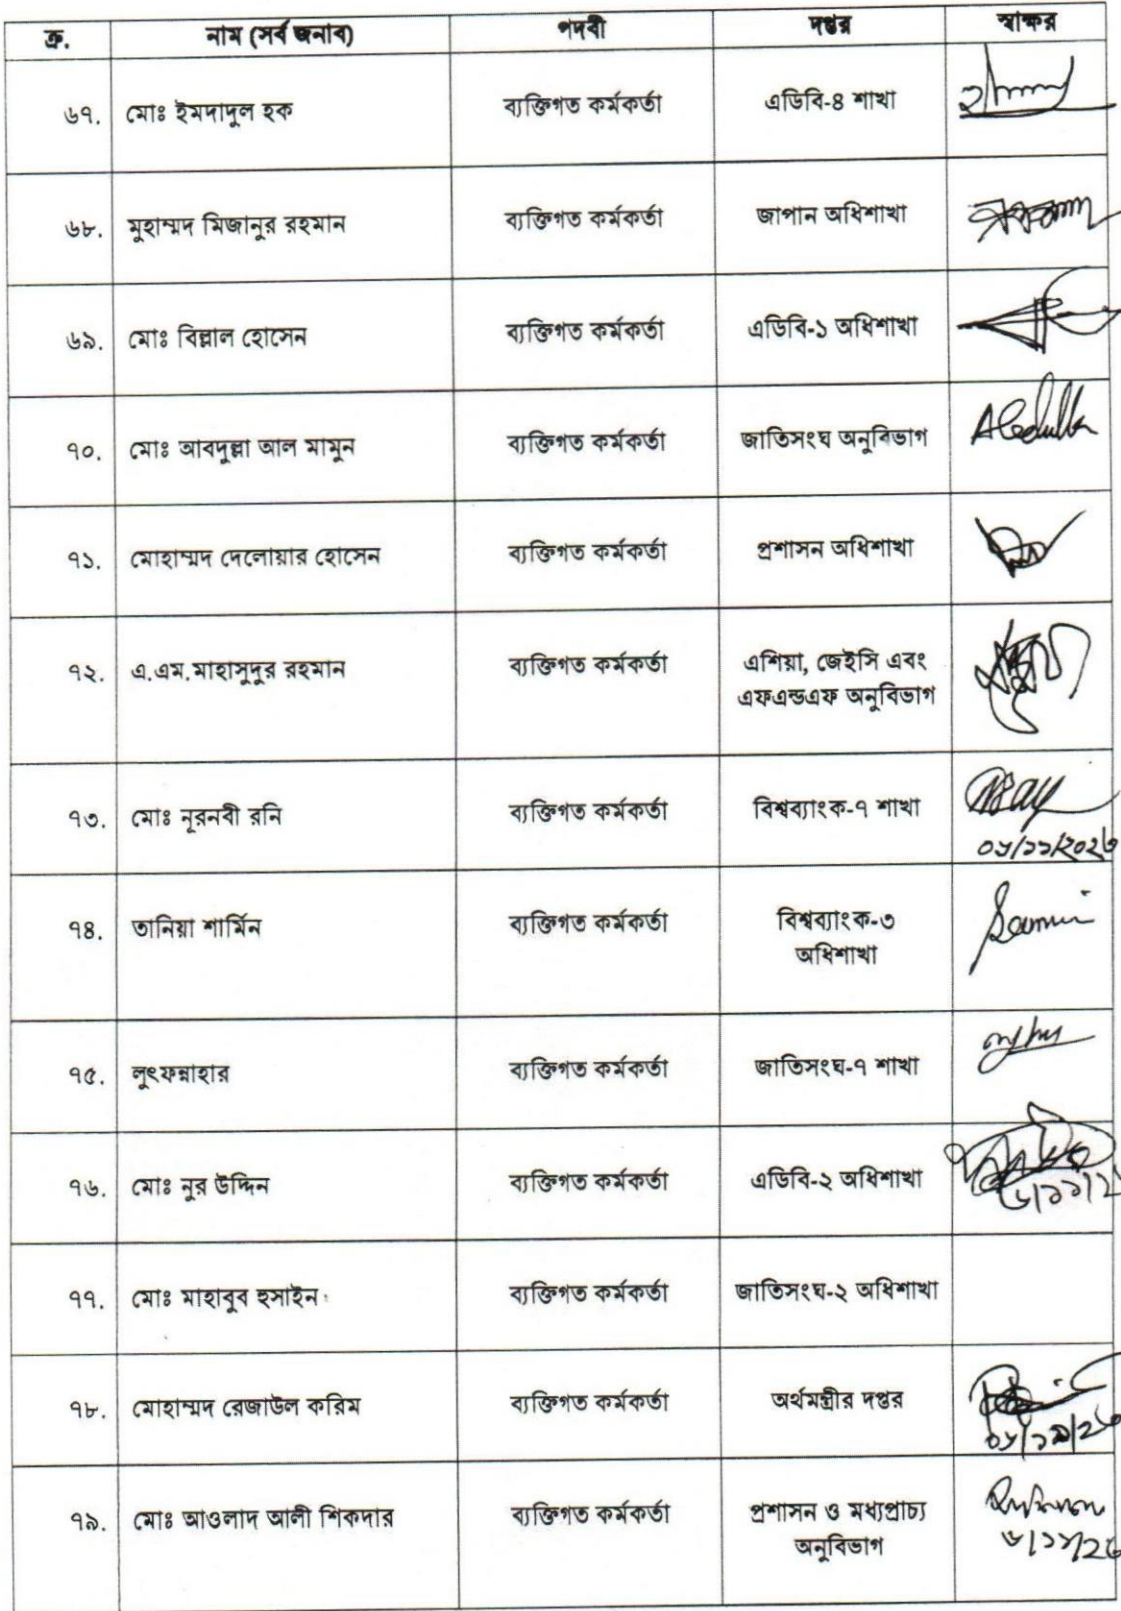 ক্র. নাম (সর্ব জনাব) পদবী দপ্তর স্বাক্ষর
৬৭. মোঃ ইমদাদুল হক ব্যক্তিগত কর্মকর্তা এডিবি-৪ শাখা
৬৮. মুহাম্মদ মিজানুর রহমান ব্যক্তিগত কর্মকর্তা জাপান অধিশাখা
৬৯. মোঃ বিল্লাল হোসেন ব্যক্তিগত কর্মকর্তা এডিবি-১ অধিশাখা
৭০. মোঃ আবদুল্লা আল মামুন ব্যক্তিগত কর্মকর্তা জাতিসংঘ অনুবিভাগ
৭১. মোহাম্মদ দেলোয়ার হোসেন ব্যক্তিগত কর্মকর্তা প্রশাসন অধিশাখা
৭২. এ.এম.মাহাসুদুর রহমান ব্যক্তিগত কর্মকর্তা এশিয়া, জেইসি এবং
এফএন্ডএফ অনুবিভাগ
৭৩. মোঃ নূরনবী রনি ব্যক্তিগত কর্মকর্তা বিশ্বব্যাংক-৭ শাখা
৭৪. তানিয়া শার্মিন ব্যক্তিগত কর্মকর্তা বিশ্বব্যাংক-৩
অধিশাখা
৭৫. লুৎফন্নাহার ব্যক্তিগত কর্মকর্তা জাতিসংঘ-৭ শাখা
৭৬. মোঃ নুর উদ্দিন ব্যক্তিগত কর্মকর্তা এডিবি-২ অধিশাখা
৭৭. মোঃ মাহাবুব হুসাইন ব্যক্তিগত কর্মকর্তা জাতিসংঘ-২ অধিশাখা
৭৮. মোহাম্মদ রেজাউল করিম ব্যক্তিগত কর্মকর্তা অর্থমন্ত্রীর দপ্তর
৭৯. মোঃ আওলাদ আলী শিকদার ব্যক্তিগত কর্মকর্তা প্রশাসন ও মধ্যপ্রাচ্য
অনুবিভাগ